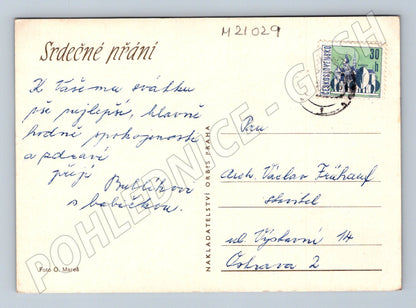 M21029
Srdečné přání
K Vašemu svátku
vše nejlepší, hlavně
hodně spokojenosti
a zdraví
přejí Bublíkova
s babičkou.
Foto O. Mareš
NAKLADATELSTVÍ ORBIS PRAHA
ČESKOSLOVENSKO
30 h
Pan
Arch. Václav Frühauf
stavitel
ul. Výstavní 14
Ostrava 2
POHLEDNICE - G